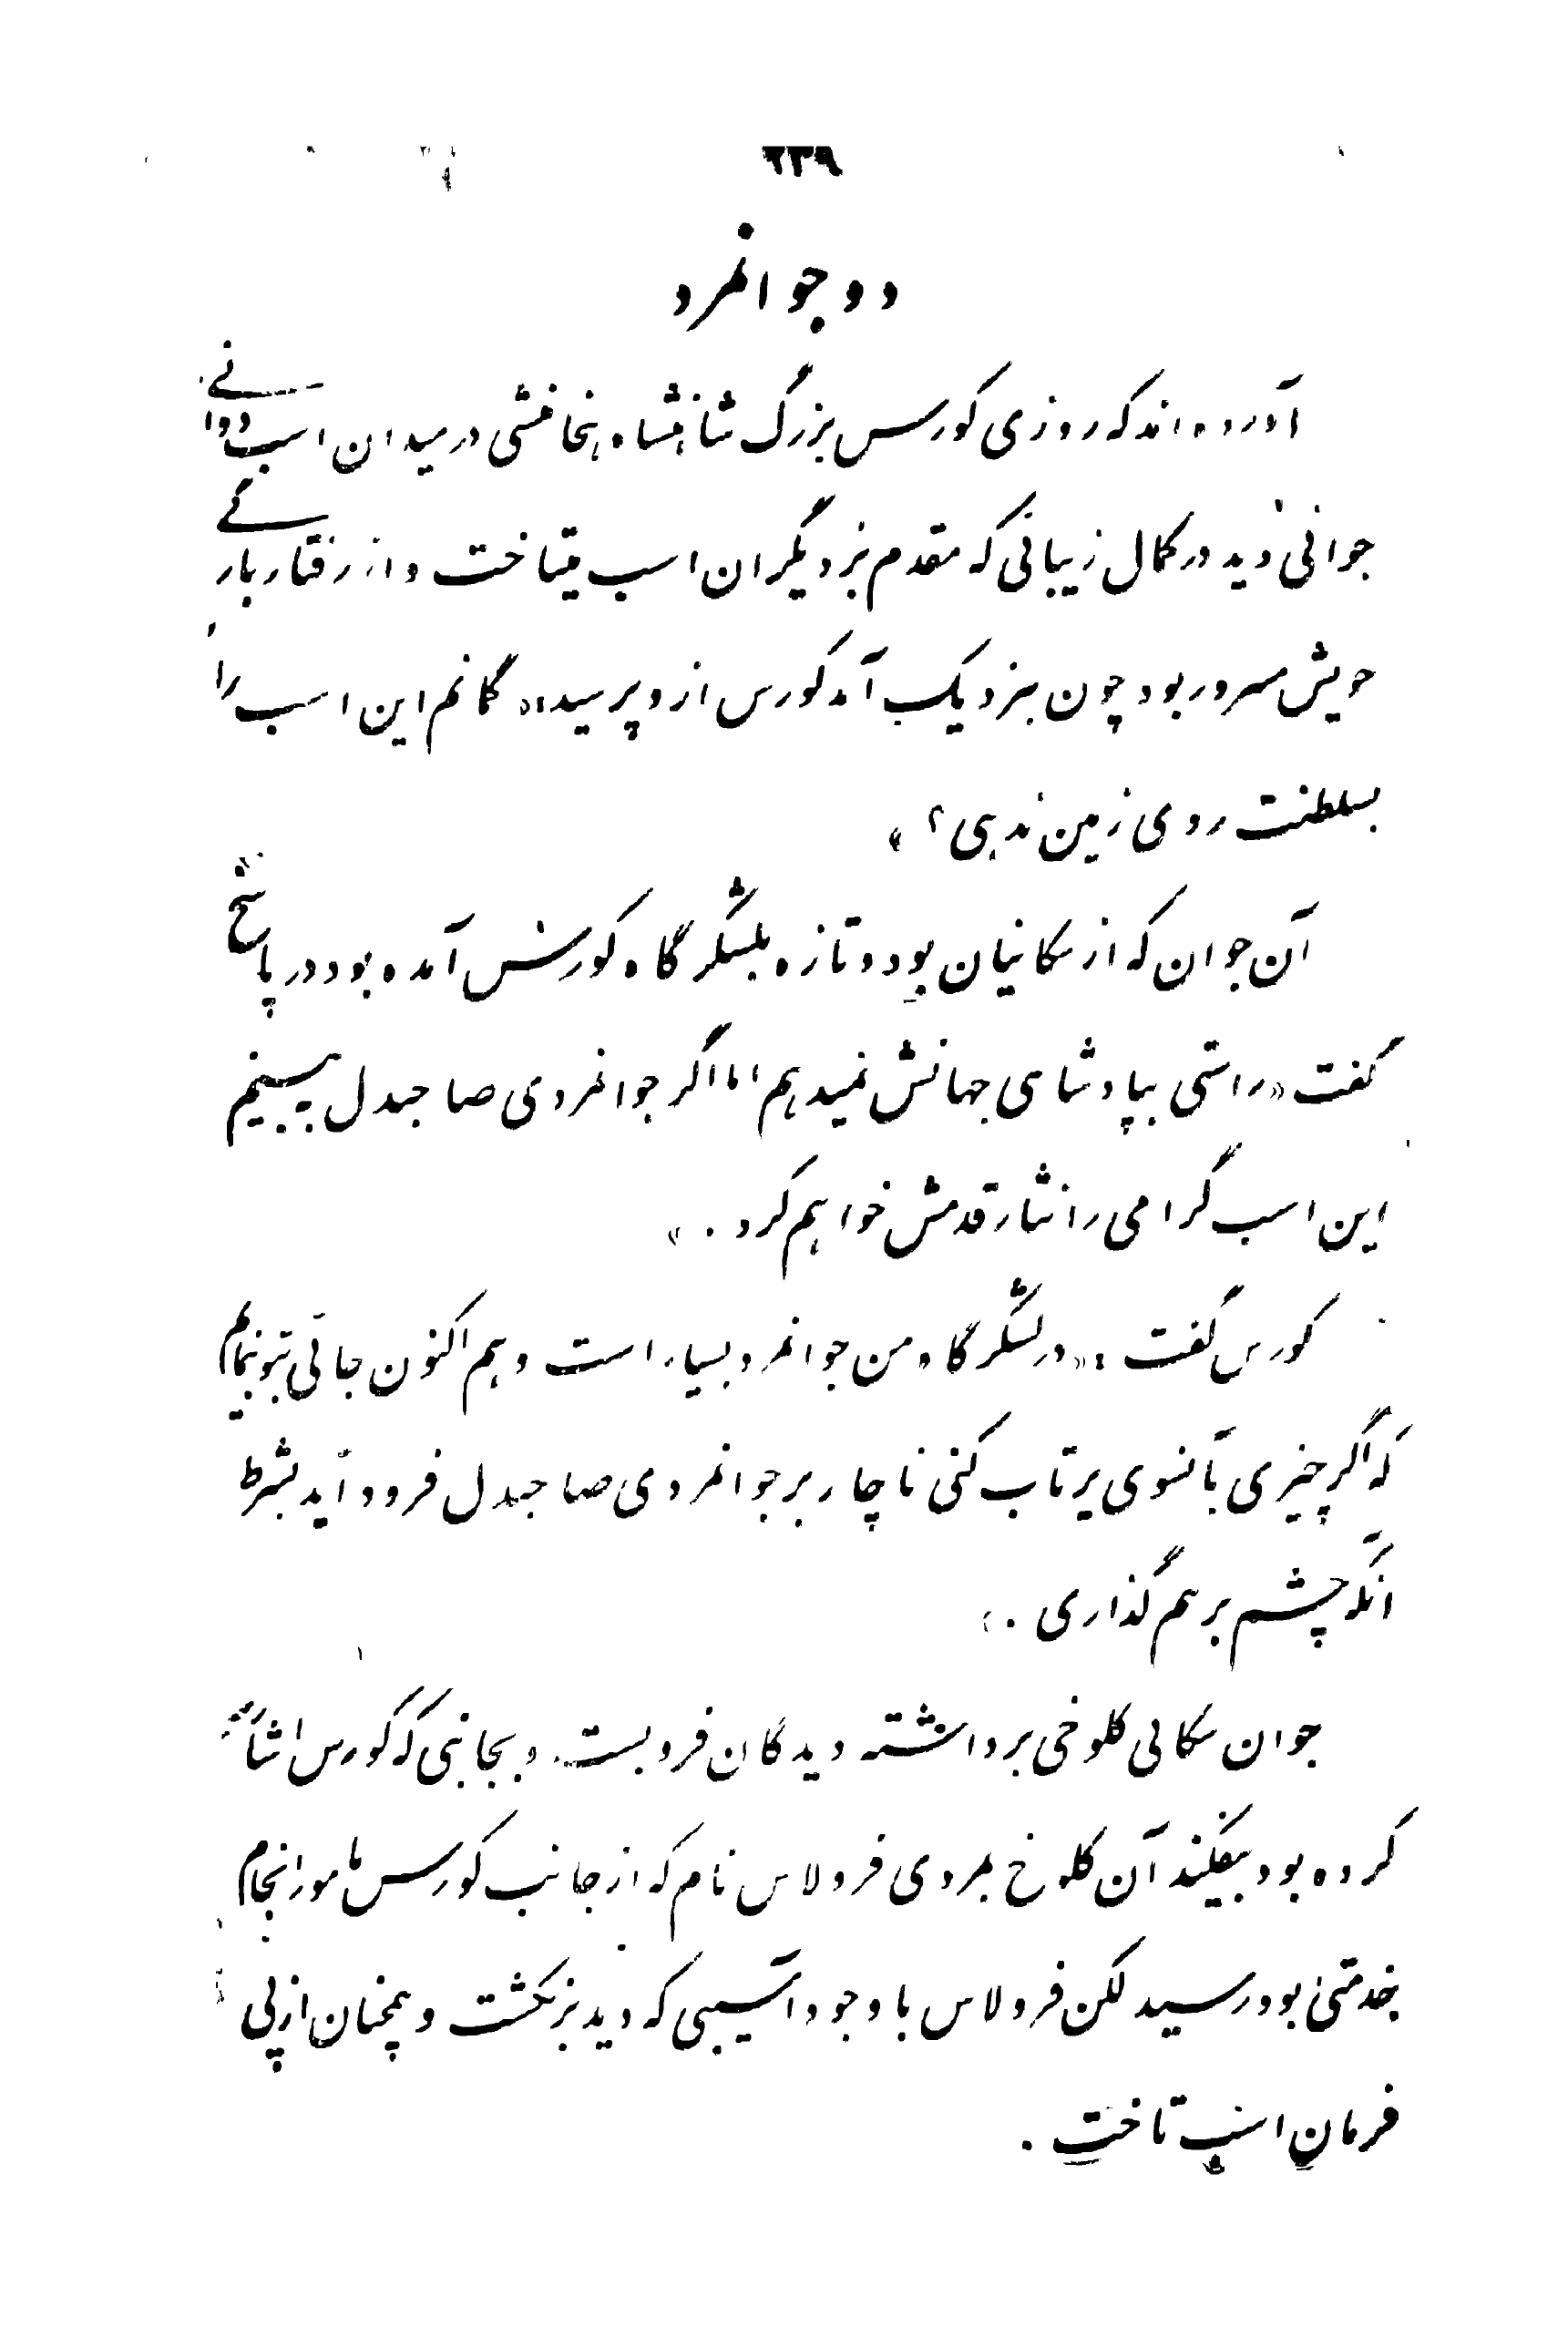 ۲۳۹
دو جوانمرد
آورده‌اند که روزی کورس بزرگ شاهنشاه هخامنشی در میدان اسب دوانی
جوانی دید در کمال زیبائی که مقدم بر دیگران اسب میتاخت و از رفتار بارگی
خویش مسرور بود چون بنزدیک آمد کورس ازو پرسید «گمانم این اسب را
بسلطنت روی زمین ندهی؟»
آن جوان که از سکائیان بود و تازه بلشگرگاه کورس آمده بود در پاسخ
گفت «راستی بپادشاهی جهانش نمیدهم اما اگر جوانمردی صاحبدل ببینم
این اسب گرامی را نثار قدمش خواهم کرد.»
کورس گفت: «در لشگرگاه من جوانمرد بسیار است و هم اکنون جائی بتو بنمایم
که اگر چیزی بآنسوی پرتاب کنی ناچار بر جوانمردی صاحبدل فرود آید بشرط
آنکه چشم بر هم گذاری.»
جوان سکائی کلوخی برداشته دیدگان فرو بست و بجانبی که کورس اشاره
کرده بود بیفکند آن کلوخ بمردی فرولاس نام که از جانب کورس مامور انجام
خدمتی بود رسید لکن فرولاس با وجود آسیبی که دید برنگشت و همچنان از پی
فرمان اسب تاخت.